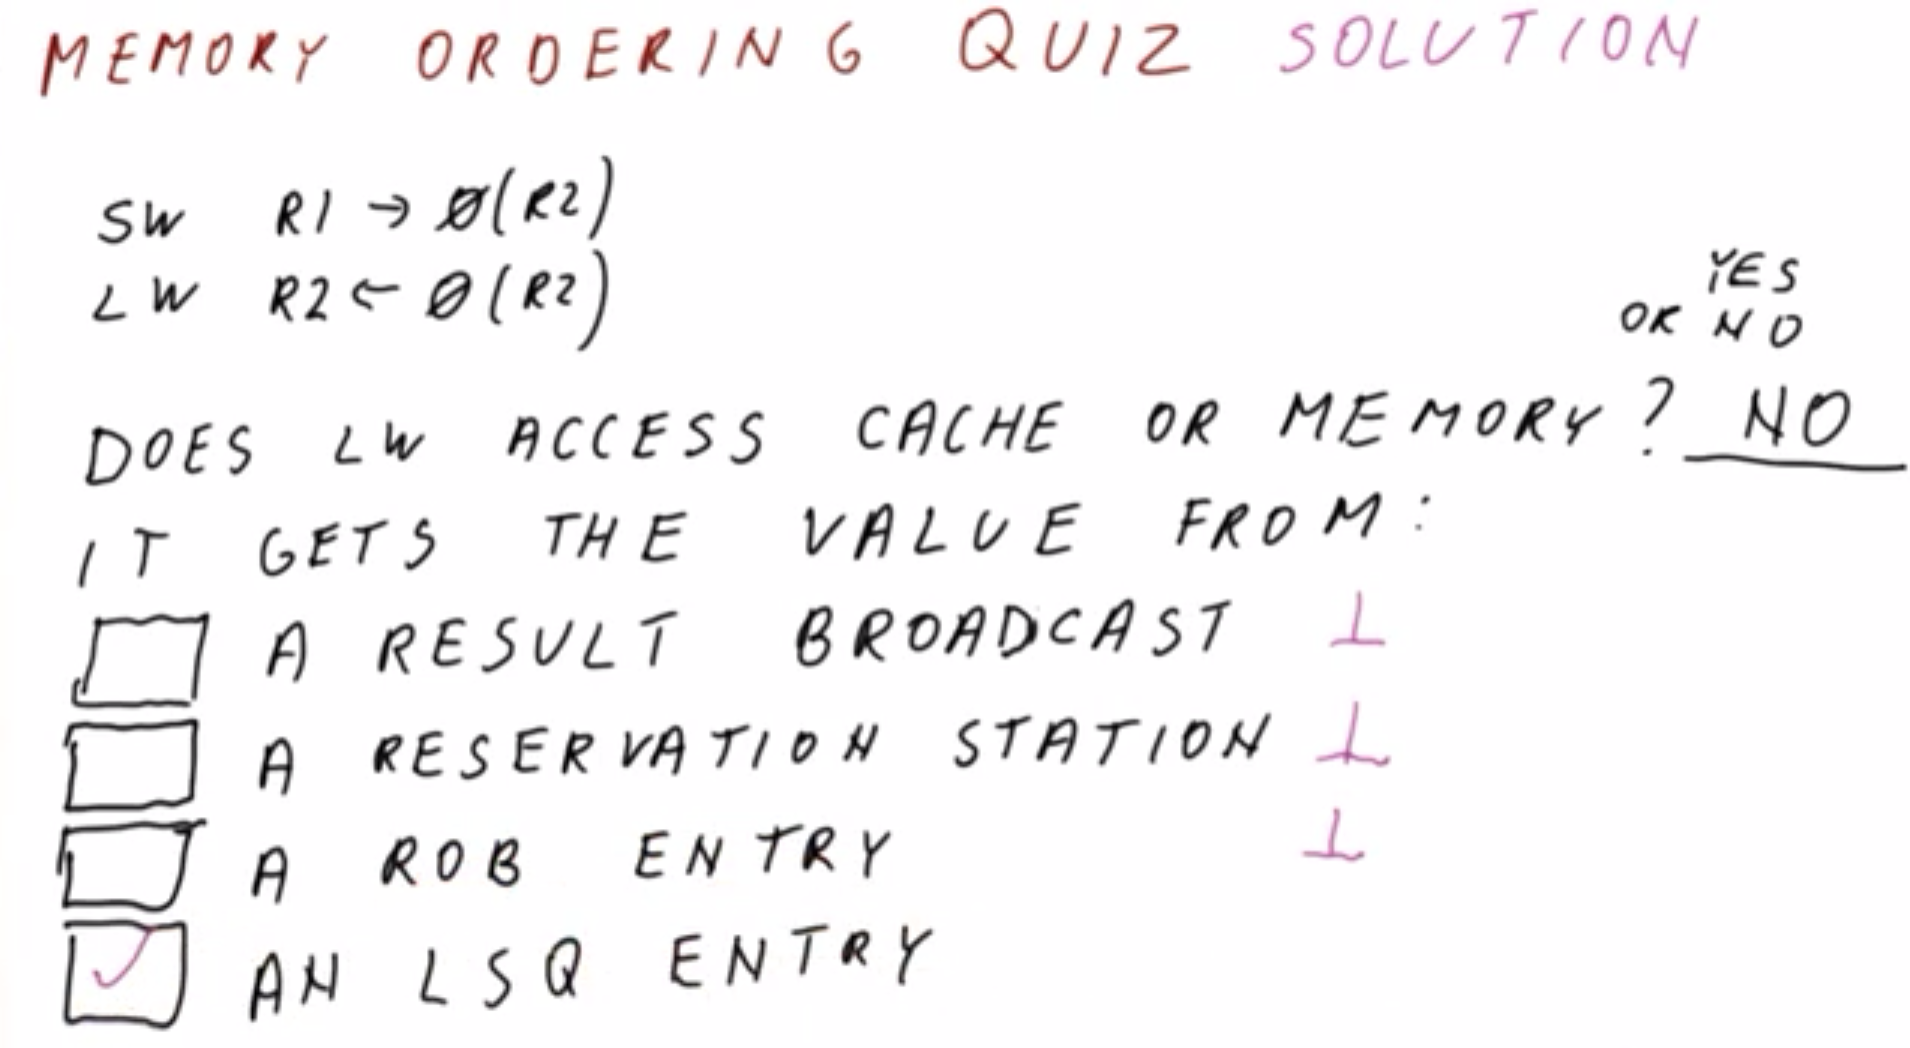 MEMORY ORDERING QUIZ SOLUTION
SW R1 → 0(R2)
LW R2 ← 0(R2)
YES
OR NO
DOES LW ACCESS CACHE OR MEMORY? NO
IT GETS THE VALUE FROM:
A RESULT BROADCAST ⊥
A RESERVATION STATION ⊥
A ROB ENTRY ⊥
✓ AN LSQ ENTRY